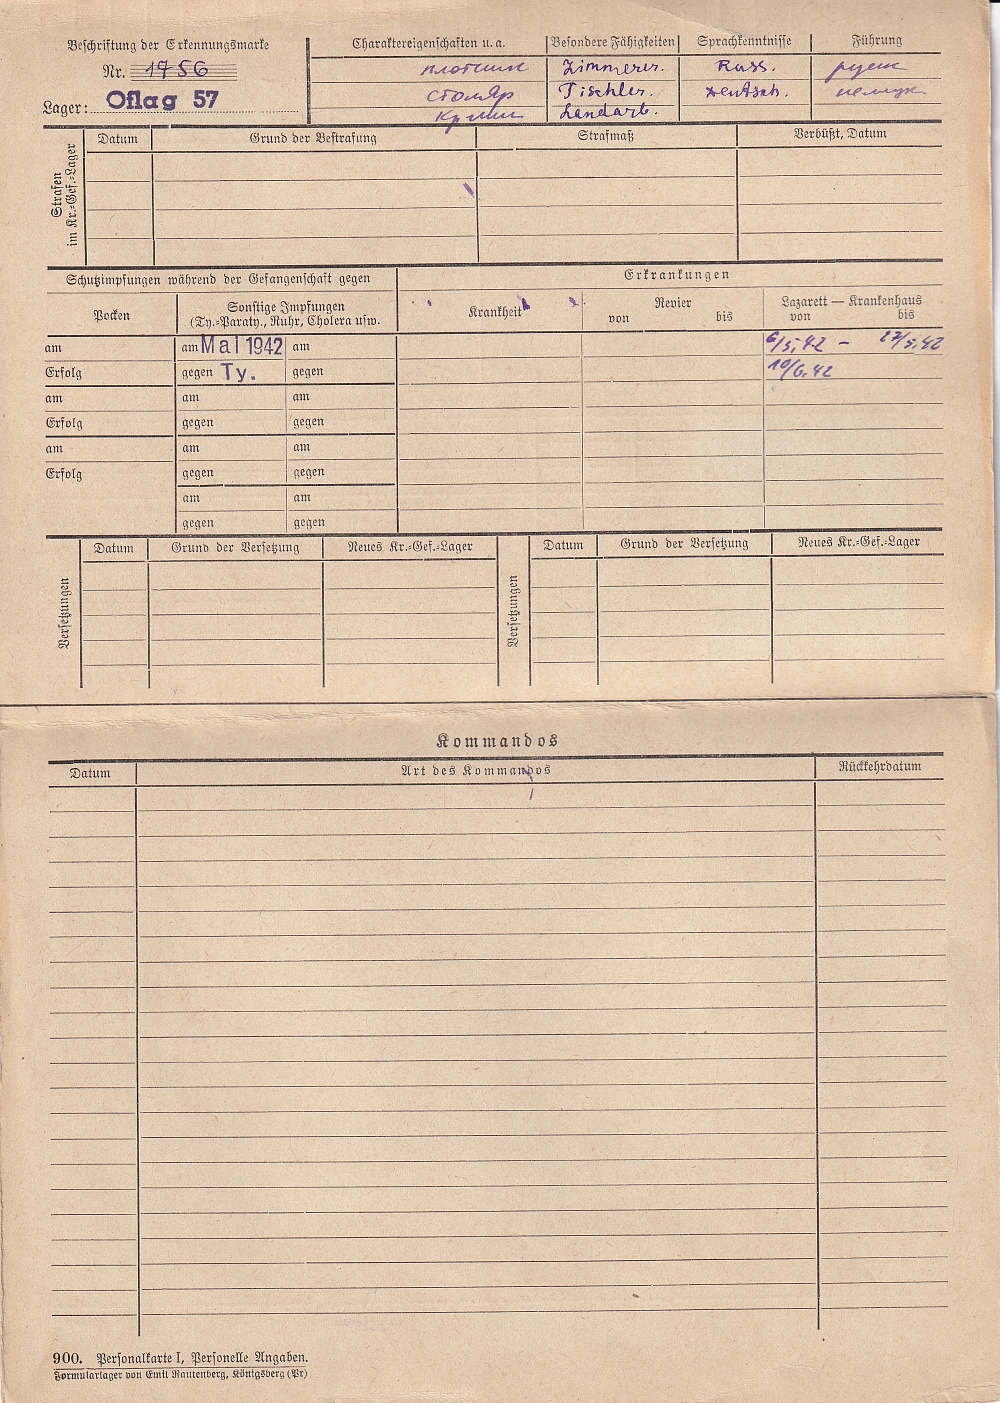 Beschriftung der Erkennungsmarke
Nr. 1756
Lager: Oflag 57
Charaktereigenschaften u. a.
Besondere Fähigkeiten
Sprachkenntnisse
Führung
плотник Zimmerer. Russ.
столяр Tischler. Deutsch.
Landarb.
Strafen im Kr.=Gef.=Lager
Datum
Grund der Bestrafung
Strafmaß
Verbüßt, Datum
Schutzimpfungen während der Gefangenschaft gegen
Erkrankungen
Pocken
Sonstige Impfungen
(Ty.=Paraty., Ruhr, Cholera usw.
Krankheit
Revier
von bis
Lazarett — Krankenhaus
von bis
am am Mai 1942 am 6/5.42 – 27/5.42
Erfolg gegen Ty. gegen 10/6.42
am am am
Erfolg gegen gegen
am am am
Erfolg gegen gegen
am am
gegen gegen
Versetzungen
Datum
Grund der Versetzung
Neues Kr.=Gef.=Lager
Versetzungen
Datum
Grund der Versetzung
Neues Kr.=Gef.=Lager
Kommandos
Datum
Art des Kommandos
Rückkehrdatum
900. Personalkarte I, Personelle Angaben.
Formularlager von Emil Rautenberg, Königsberg (Pr)